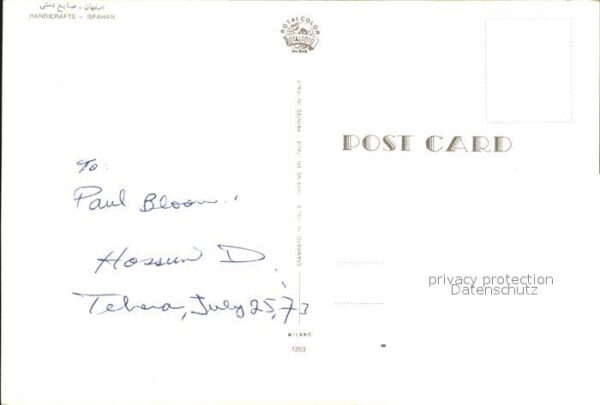 اصفهان - صنایع دستی
HANDICRAFTS - ISFAHAN
ROTALCOLOR
ROTALFOTO
MILANO
POST CARD
To:
Paul Bloom
Hossein D.
Tehran, July 25, 73
STAMPATO IN ITALIA IMPRIMÉ EN ITALIE PRINTED IN ITALY
MILANO
1253
privacy protection
Datenschutz